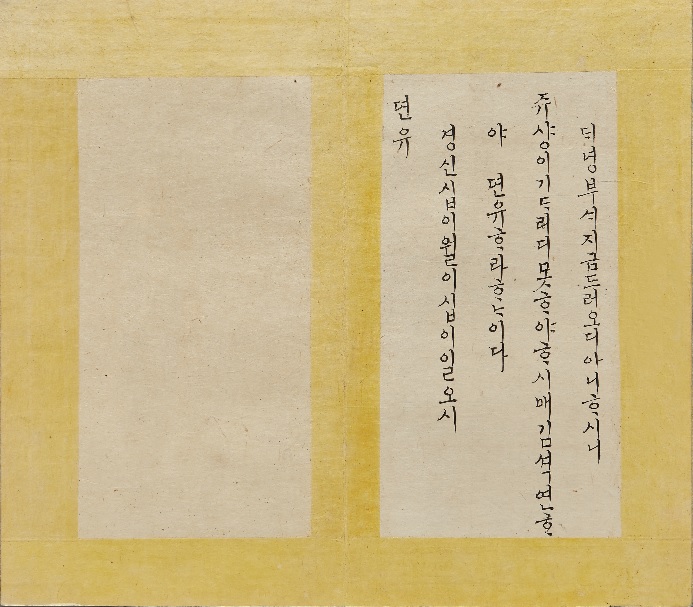 녕부ᄉᆡ지금드러오디아니ᄒᆞ시니
쥬샹이기ᄃᆞ려디못ᄒᆞ야ᄒᆞ시매김셕연ᄒᆞ
야 뎐유ᄒᆞ라ᄒᆞᄂᆞ이다
경신십이월이십이일오시
뎐유